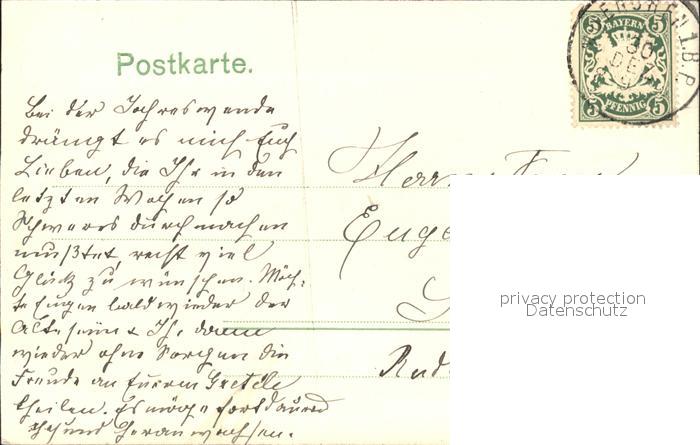 5 BAYERN 5
30
DEZ
1.B.P.
5 PFENNIG 5
Postkarte.
Bei der Jahreswende
drängt es mich Euch
Lieben, die Ihr in den
letzten Wochen so
Schweres durchmachen
mußtet, recht viel
Glück zu wünschen. Möch-
te Eugen bald wieder der
Alte sein & Ihr dann
wieder ohne Sorgen die
Freude an Eurem Gretele
theilen. Es möge fortdauernd
heranwachsen.
Herrn
Euge
Rud
privacy protection
Datenschutz